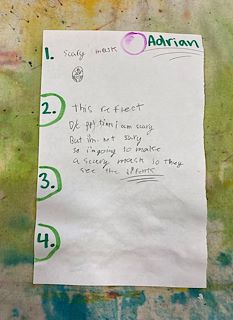 Adrian
1. scary mask
2. this reflect
b/c ppl think i am scary
But im not scary
so im going to make
a scary mask so they
see the
3.
4.